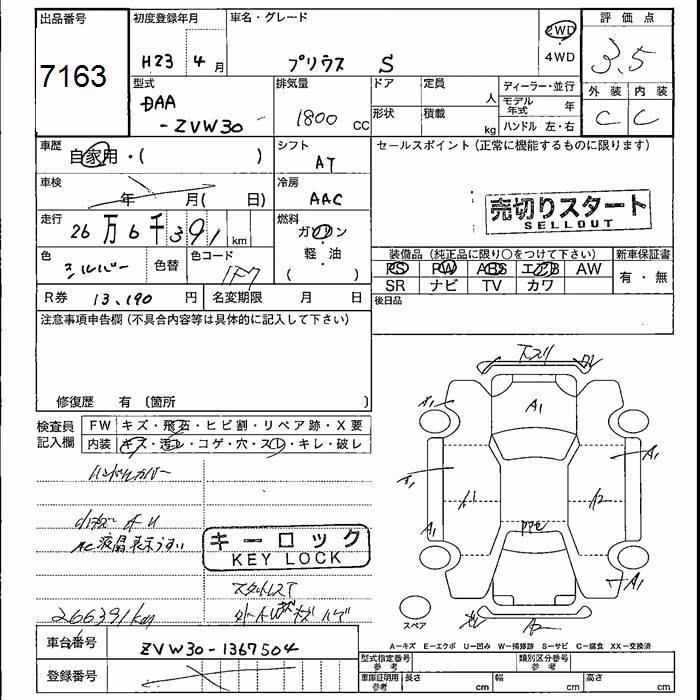 出品番号
7163
初度登録年月
H23 4月
車名・グレード
プリウス S
2WD
4WD
評価点
3.5
外装 内装
C C
型式
DAA
-ZVW30
排気量
1800 CC
ドア
定員
人
形状
積載
kg
ディーラー・並行
モデル年式 年
ハンドル 左・右
車歴
自家用・( )
シフト
AT
セールスポイント(正常に機能するものに限ります)
車検
年 月( 日)
冷房
AAC
売切りスタート
SELLOUT
走行
26万6千391 km
燃料
ガソリン
軽・油
( )
色
シルバー
色替
色コード
1F7
装備品(純正品に限り〇をつけて下さい)
PS PW ABS エアB AW
SR ナビ TV カワ
新車保証書
有・無
後日品
R券 13,190 円
名変期限 月 日
注意事項申告欄(不具合内容等は具体的に記入して下さい)
修復歴 有〔箇所 〕
検査員記入欄
FW キズ・飛石・ヒビ割・リペア跡・X要
内装 キズ・汚レ・コゲ・穴・スレ・キレ・破レ
ハンドルカバー
AC液晶表示うすい
キーロック
KEY LOCK
スタットレスT
266391km
下スリ
A1
A1
A1
A1
A1
A1
A2
スペア
A-キズ E-エクボ U-凹み W-補修跡 S-サビ C-腐食 XX-交換済
車台番号
ZVW30-1367504
登録番号
型式指定番号
参考
類別区分番号
参考
車庫証明用
参考
長さ cm
幅 cm
高さ cm